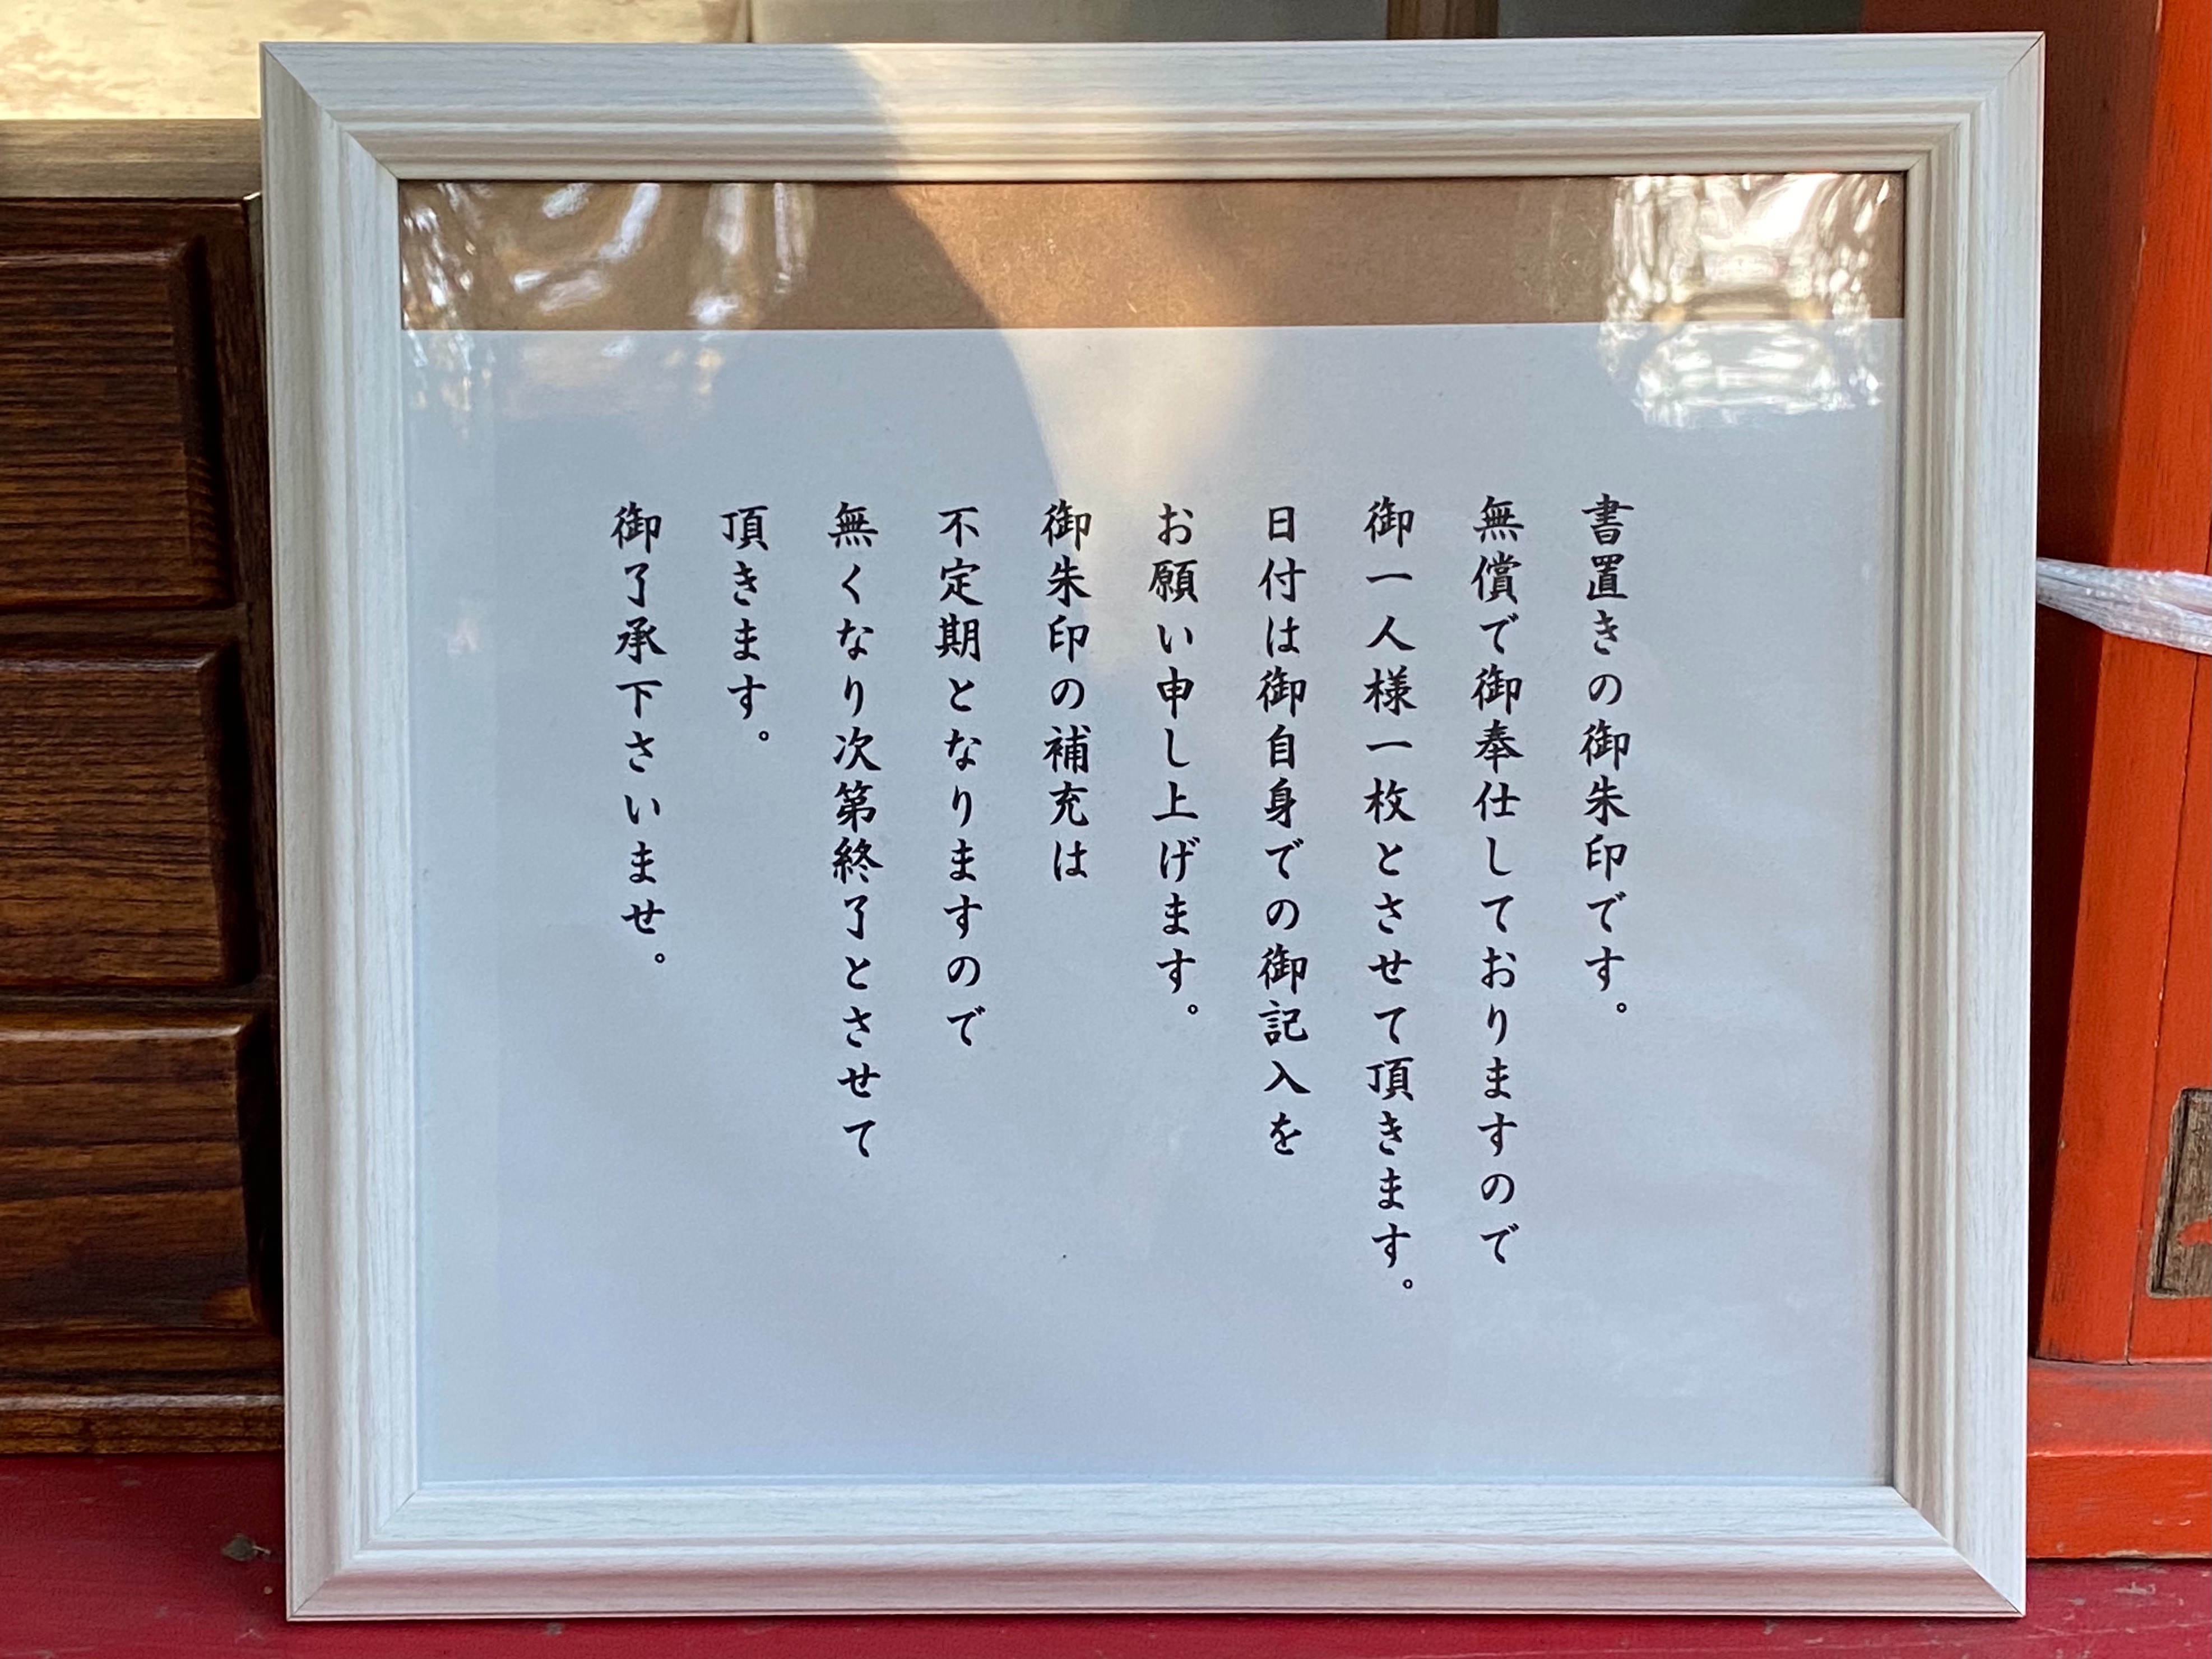 書置きの御朱印です。
無償で御奉仕しておりますので
御一人様一枚とさせて頂きます。
日付は御自身での御記入を
お願い申し上げます。
御朱印の補充は
不定期となりますので
無くなり次第終了とさせて
頂きます。
御了承下さいませ。